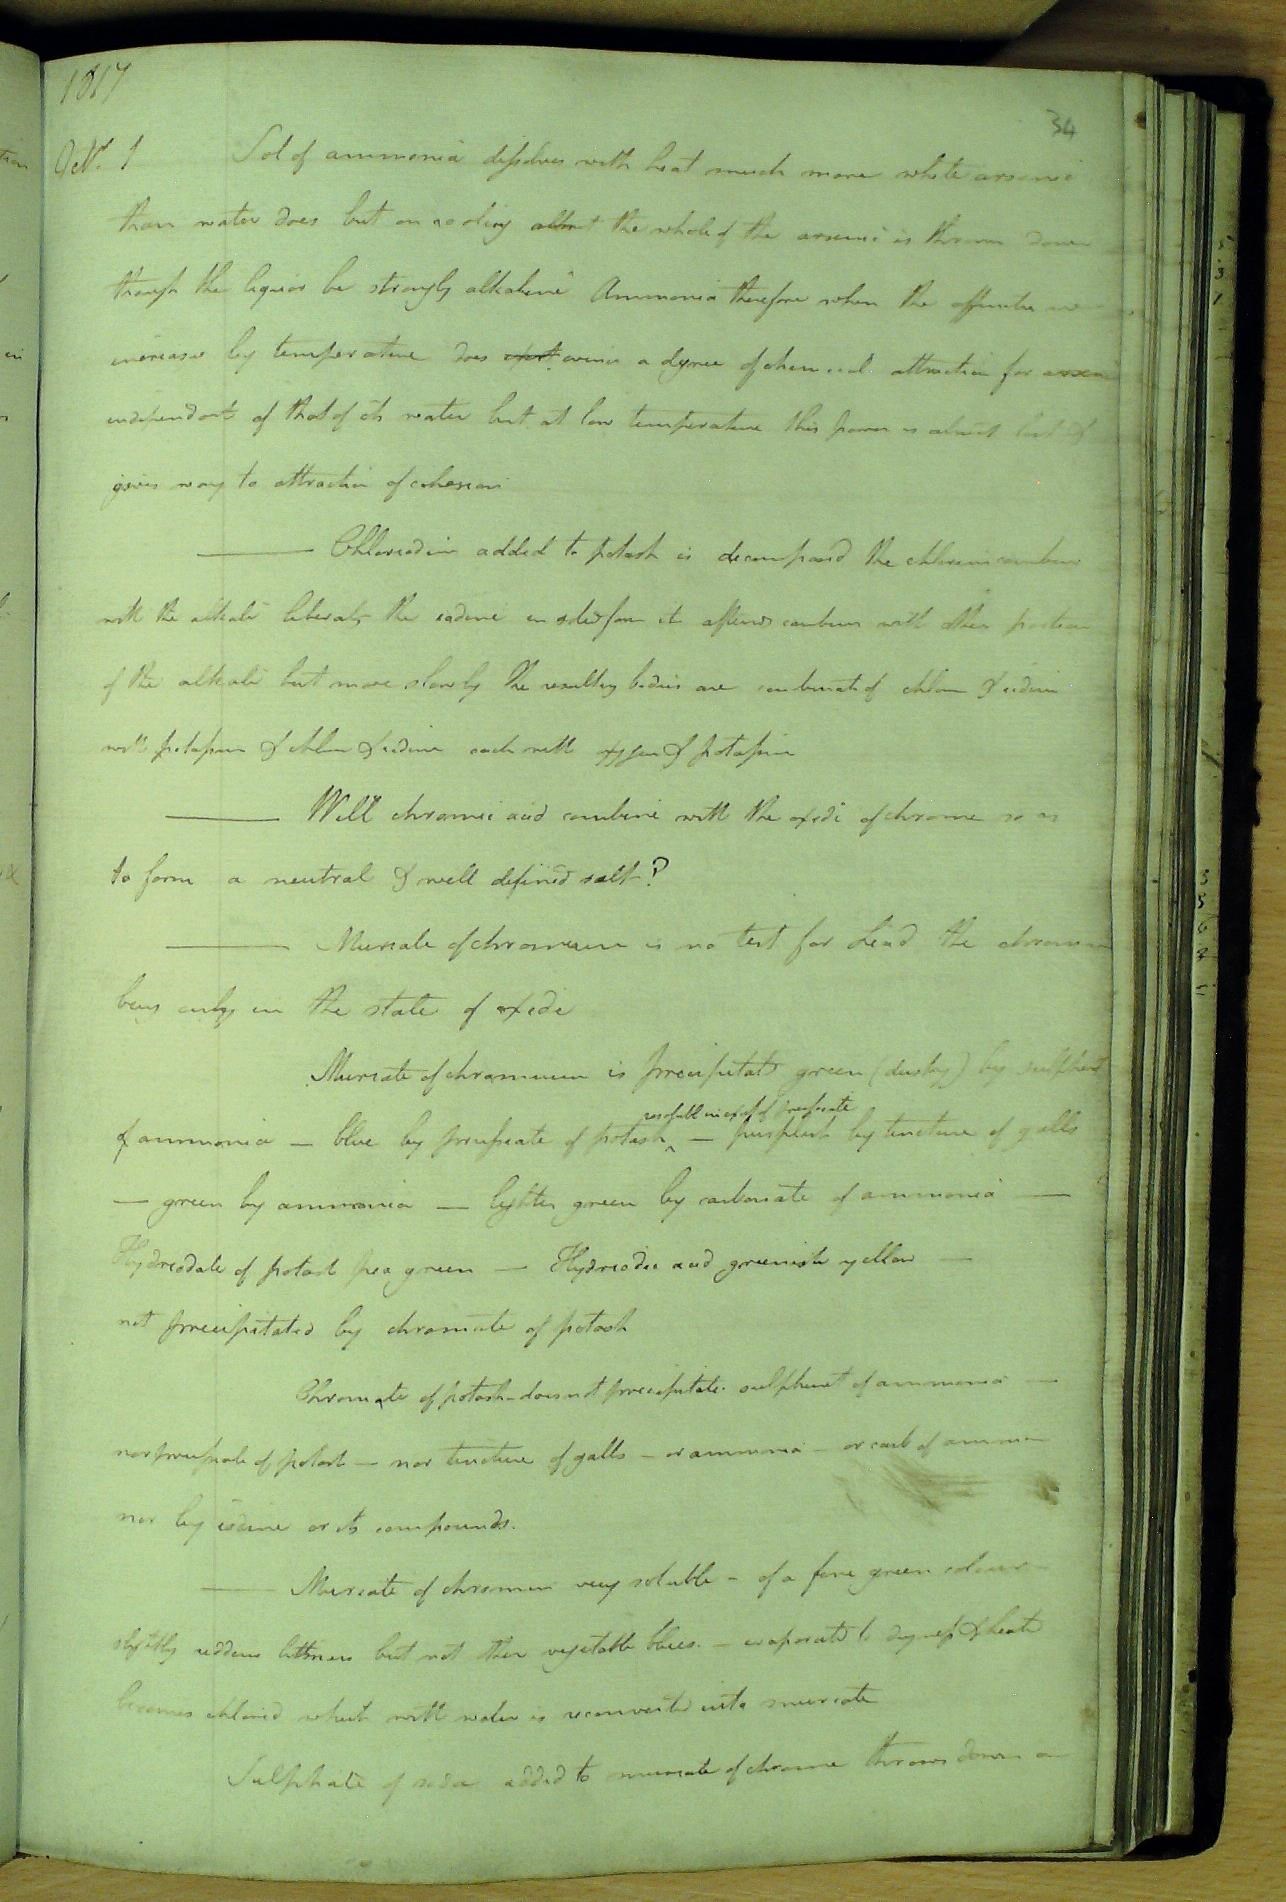 1817
34
Octr. 1 Sol of ammonia dissolves with heat much more white arsenic
than water does but on cooling almost the whole of the arsenic is thrown down
though the liquor be strongly alkaline Ammonia therefore when the affinities are
increased by temperature does evince a degree of chemical attraction for
independent of that of its water but at low temperature this power is almost lost &
gives way to attraction of cohesion
Chloriodine added to potash is decomposed the chlorine combines
with the alkali liberates the iodine in solid form it afterwds combines with other portion
of the alkali but more slowly the resulting bodies are combinats of chlorine & iodine
with potassium & chlorine & iodine each with oxygen & potassium
Will chromic acid combine with the oxide of chrome so as
to form a neutral & well defined salt?
Muriate of chromium is no test for Lead the chromium
being only in the state of oxide
Muriate of chromium is precipitated green (dusky) by sulphuret
of ammonia — blue by prussiate of potash — purplish by tincture of galls
of prussiate
— green by ammonia — lighter green by carbonate of ammonia —
Hydriodate of potash pea green — Hydriodic acid greenish yellow —
not precipitated by chromate of potash
Chromate of potash does not precipitate sulphuret of ammonia —
nor prussiate of potash — nor tincture of galls — or ammonia — or carb of ammon
nor by iodine or its compounds.
Muriate of chromium very soluble - of a fine green colour
slightly reddens littmus but not other vegetable blues. — evaporated to dryness & heated
becomes chloride which with water is reconverted into muriate
Sulphate of soda added to muriate of chrome throws down an